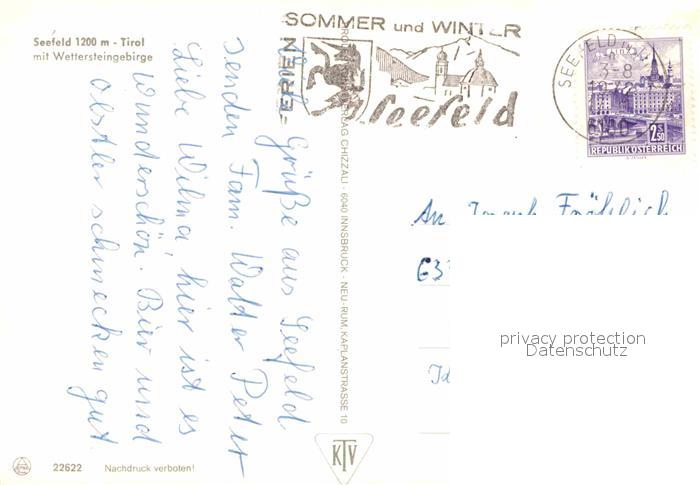 Seefeld 1200 m - Tirol
mit Wettersteingebirge
SOMMER und WINTER
FERIEN
Seefeld
SEEFELD
3-8
6100
2.S50
REPUBLIK ÖSTERREICH
Grüße aus Seefeld
senden Fam. Walter Peter
Liebe Wilma, hier ist es
wunderschön. Bier und
Obstler schmecken gut
VERLAG CHIZZALI - 6040 INNSBRUCK - NEU-RUM, KAPLANSTRASSE 10
An Joseph Fröhlich
privacy protection
Datenschutz
KTV
22622 Nachdruck verboten!